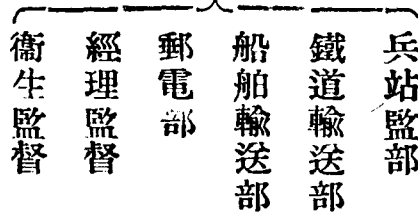 兵站監部
鐵道輸送部
船舶輸送部
郵電部
經理監督
衞生監督